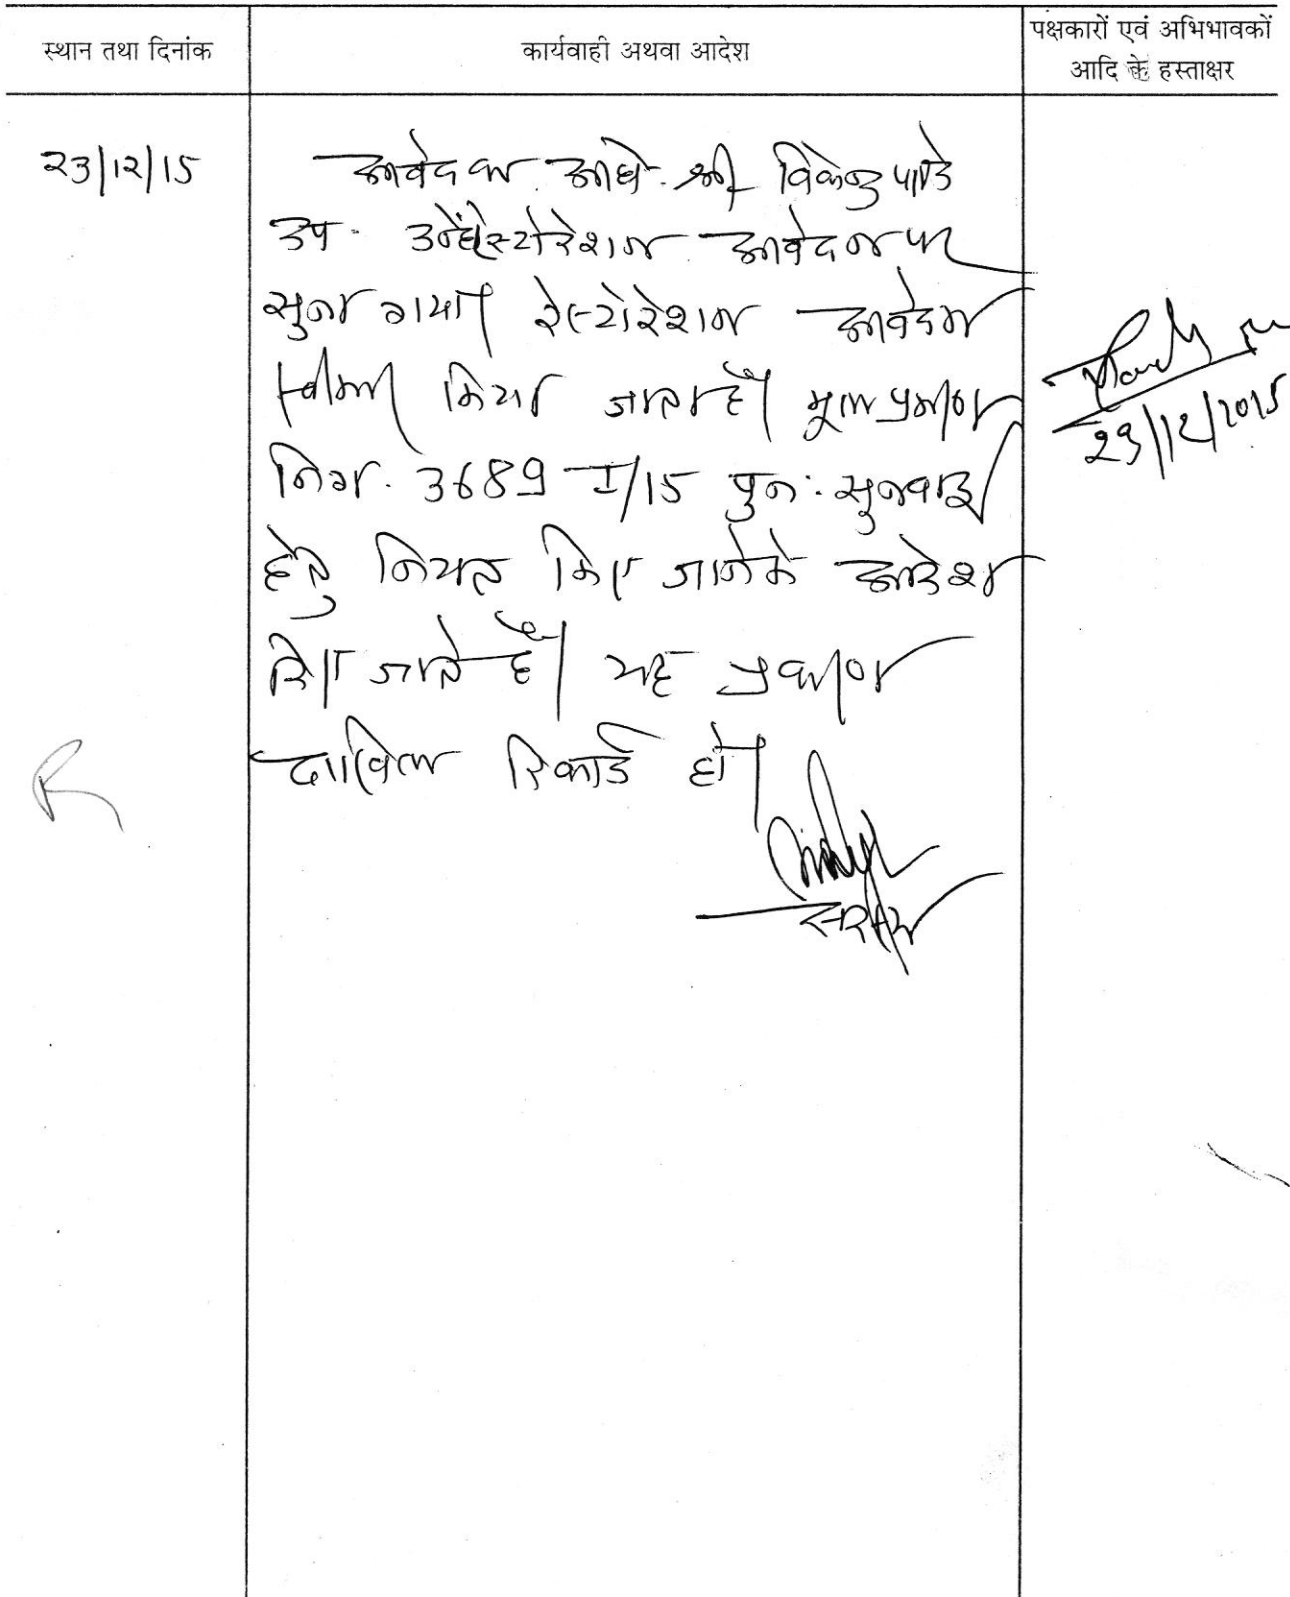 स्थान तथा दिनांक
कार्यवाही अथवा आदेश
पक्षकारों एवं अभिभावकों
आदि के हस्ताक्षर
23/12/15
आवेदक अधि. श्री पांडे
उप. उन्हें रेस्टोरेशन आवेदन पर
सुना गया। रेस्टोरेशन आवेदन
स्वीकार किया जाता है। मूल प्रकरण
निग. 3689-I/15 पुनः सुनवाई
हेतु नियत किए जाने के आदेश
दिए जाते हैं। यह प्रकरण
दाखिल रिकार्ड हो।
सदस्य
23/12/2015